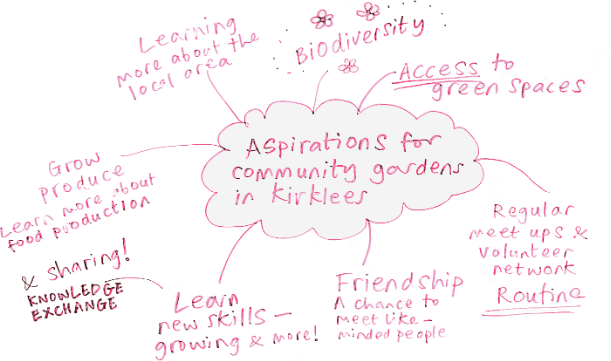 Learning
more about the
local area
Biodiversity
Access to
green spaces
Aspirations for
community gardens
in Kirklees
Grow
produce
Learn more about
food production
& sharing!
KNOWLEDGE
EXCHANGE
Learn
new skills –
growing & more!
Friendship
A chance to
meet like –
minded people
Regular
meet ups &
volunteer
network
Routine